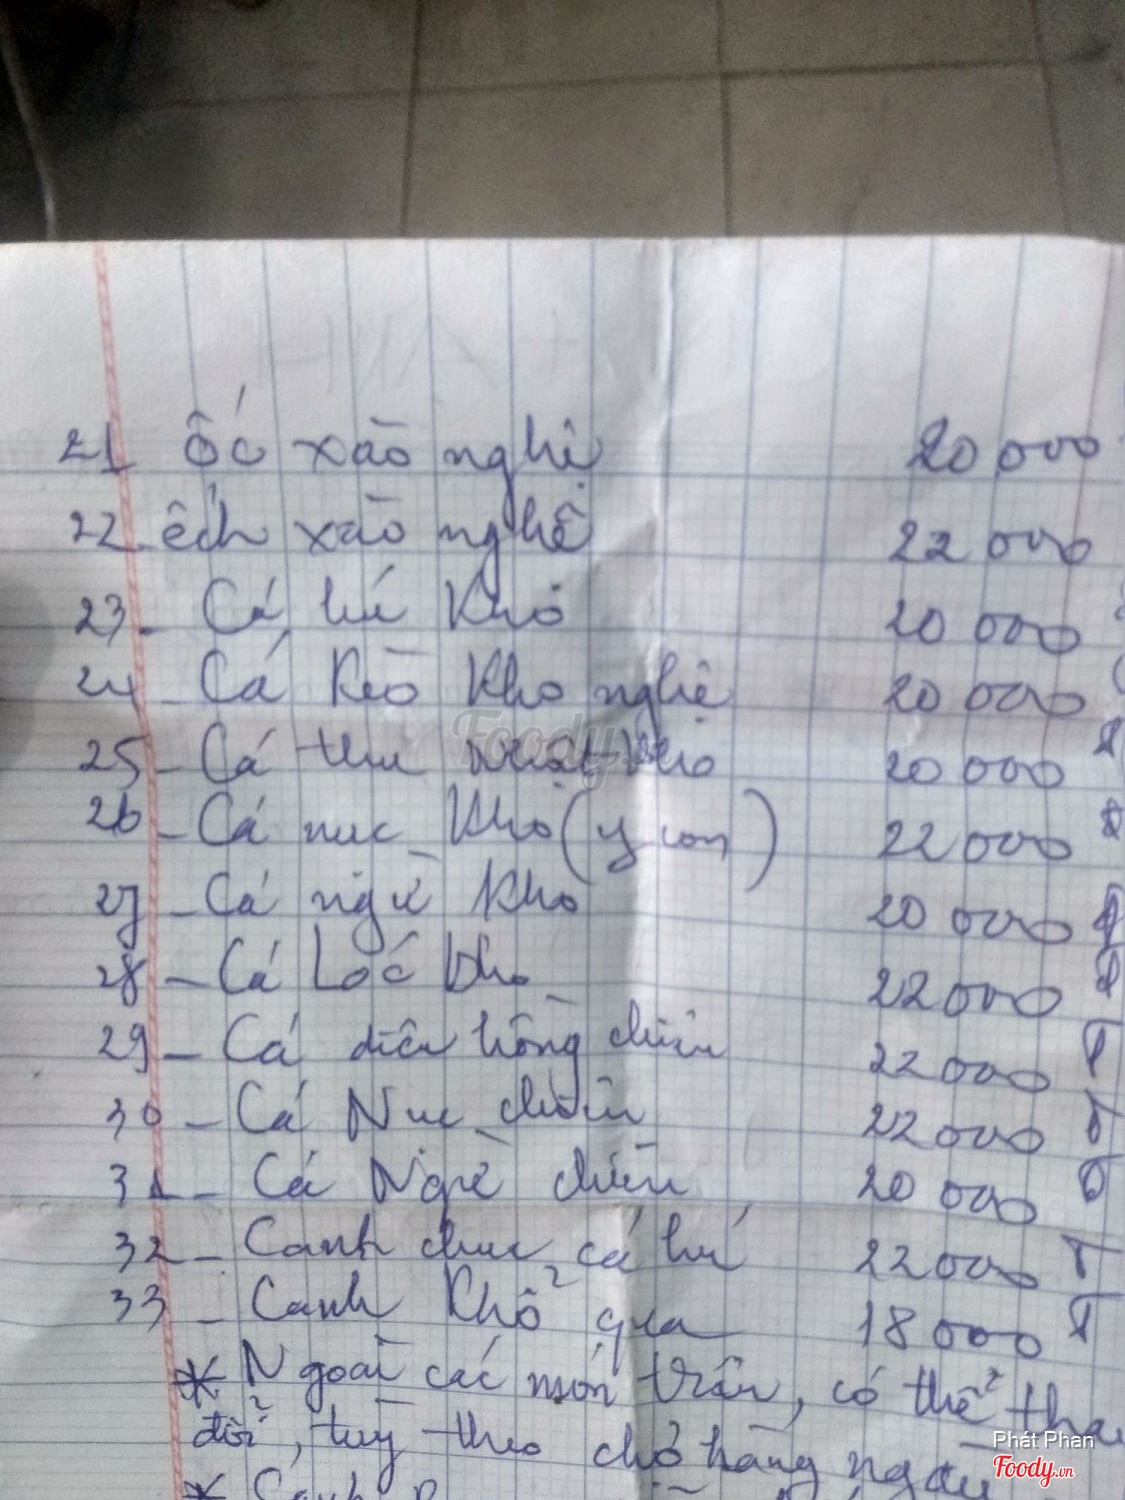 21 ốc xào nghệ 20 000
22 ếch xào nghệ 22 000
23 - Cá hú Kho 20 000
24 - Cá Kèo Kho nghệ 20 000
25 - Cá thu Kho 20 000
26 - Cá nục Kho (y con) 22 000
27 - Cá ngừ Kho 20 000
28 - Cá Lóc kho 22 000
29 - Cá diêu hồng chiên 22 000
30 - Cá Nục chiên 22 000
31 - Cá Ngừ chiên 20 000
32 - Canh chua cá hú 22 000
33 - Canh Khổ qua 18 000
* Ngoài các món trên, có thể thay
đổi, tùy theo chợ hàng ngày
* Canh
Foody.vn
Phát Phan
Foody.vn